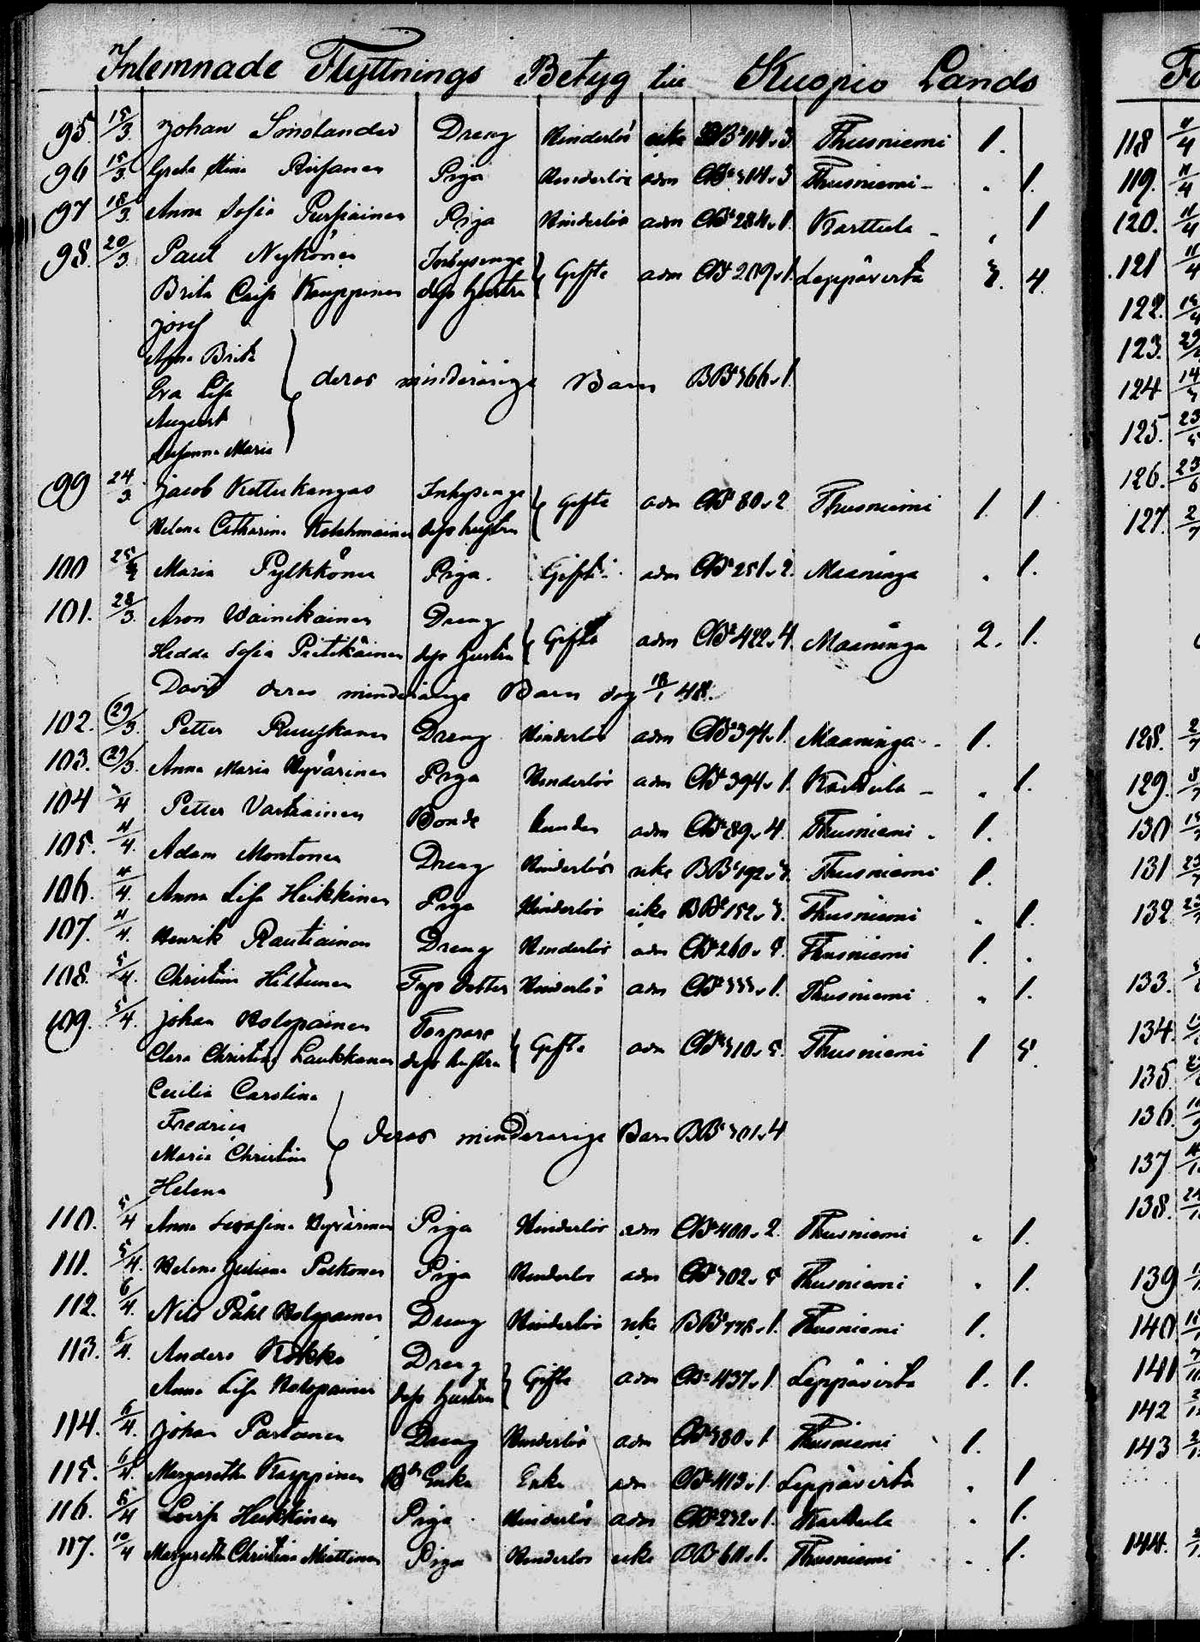 Inlemnade Flyttnings Betyg till Kuopio Lands
95. 15/3. Johan Smolander Dreng Hinderlös icke BB 1111.3. Thusniemi 1.
96 15/3. Greta Stina Pirhanen Piga Hinderlös adm CB 304.3 Thusniemi - . 1.
97 18/3. Anna Sofia Pursiainen Piga Hinderlös adm CB 284.1. Karttula - . 1
98. 20/3 Paul Nykönen Inhysinge
Brita Caisa Kauppinen dess hustru } Gifte adm CB 209.1. Leppävirta 3. 4.
Josef
Anna Brita
Eva Lisa } deras minderårige Barn BB 366.1.
August
Susanna Maria
99 24/3 Jacob Ketterkangas Inhysinge
Helena Catharina Kolehmainen dess hustru } Gifte adm CB 80.2 Thusniemi 1. 1.
100 25/3 Maria Pylkkönen Piga. Gift adm CB 251.2. Maaninga . 1.
101. 28/3. Aron Wainikainen Dreng
Hedda Sofia Pietikäinen dess hustru } Gifte adm CB 422.4. Maaninga 2. 1.
David deras minderårige Barn dog 18/1 48.
102. 29/3. Petter Ruuskanen Dreng Hinderlös adm CB 394.1. Maaninga - 1.
103. 29/3. Anna Maria Hyvärinen Piga Hinderlös adm CB 394.1. Karttula - . 1.
104 /4 Petter Vartiainen Bonde adm CB 89.4. Thusniemi . 1.
105. 4/4. Adam Montonen Dreng Hinderlös icke BB 192.3. Thusniemi 1.
106. 4/4. Anna Lisa Heikkinen Piga Hinderlös icke BB 152.3. Thusniemi . 1.
107. 4/4. Henrik Rautiainen Dreng Hinderlös adm CB 260. Thusniemi 1. .
108. 5/4. Christina Hiltunen Torp Dotter Hinderlös adm CB 333.1. Thusniemi . 1.
109. 5/4. Johan Holopainen Torpare
Clara Christina Laukkanen dess hustru } Gifte adm CB 310.5. Thusniemi 1 5.
Cecilia Carolina
Fredrica } deras minderårige Barn BB 301.4
Maria Christina
Helena
110. 5/4 Anna Serafina Hyvärinen Piga Hinderlös adm CB 400.2. Thusniemi . 1.
111. 5/4. Helena Juliana Pelkonen Piga Hinderlös adm CB 302.5 Thusniemi . 1.
112. 6/4. Nils Påhl Holopainen Dreng Hinderlös icke BB 1. Thusniemi 1.
113. 6/4. Anders Kokko Dreng
Anna Lisa Holopainen dess hustru } Gifte adm CB 437.1. Leppävirta 1. 1.
114. 6/4. Johan Partanen Dreng Hinderlös adm CB 380.1 Thusniemi 1.
115. 6/4. Margaretha Kauppinen Enka Enka adm CB 413.1. Leppävirta . 1
116. 8/4 Lovisa Heikkinen Piga Hinderlös adm CB 232.1. Karttula . 1.
117. 10/4 Margaretha Christina Miettinen Piga Hinderlös icke BB 611.1. Thusniemi . 1.
118 11/4
119. 11/4
120. 11/4
121 11/4
122.
123.
124
125. 23/5
126.
127. 2/7
128.
129.
130
131
132.
133.
134.
135
136.
137
138.
139
140
141
142
143
144.